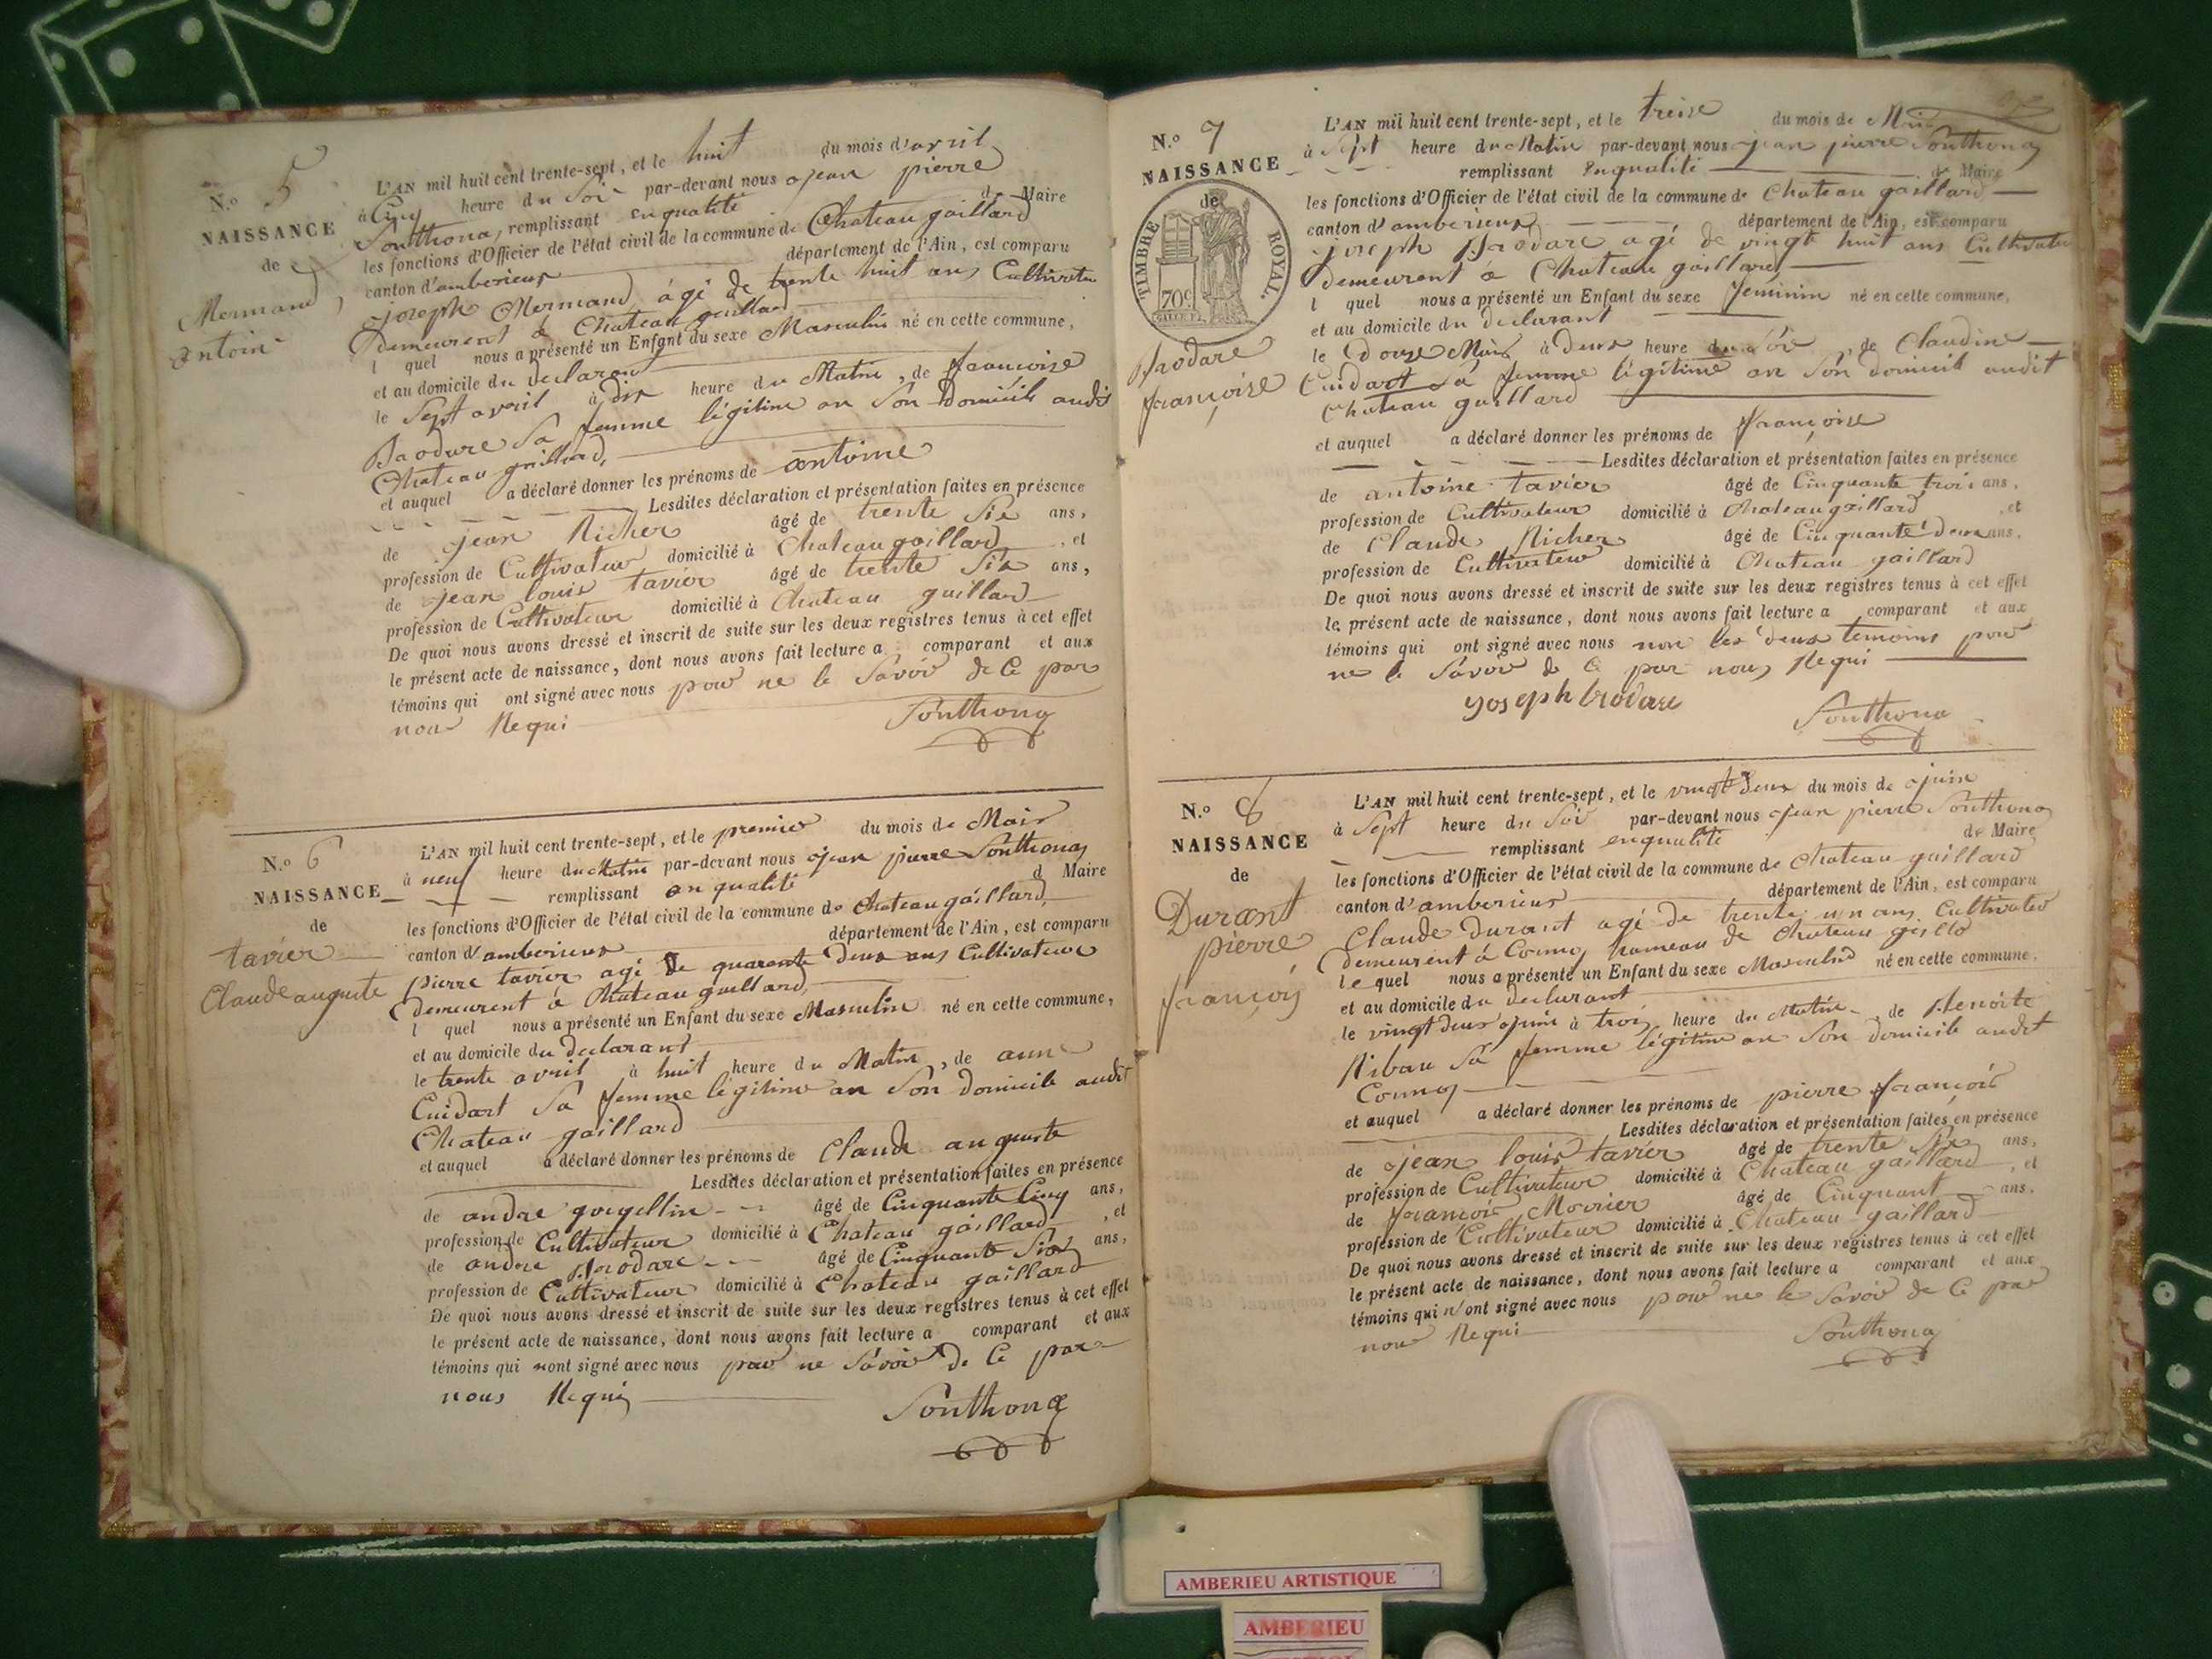 N.o 5
NAISSANCE
de
Mermand
antoine
L'AN mil huit cent trente-sept, et le huit du mois d'avril
à Cinq heure du Soir par-devant nous jean pierre
Sonthona, remplissant enqualité de Maire
les fonctions d'Officier de l'état civil de la commune de Chateau gaillard
canton d'amberieux département de l'Ain, est comparu
joseph Mermand, âgé de trente huit ans Cultivateur
Demeurent à Chateau gaillard
l quel nous a présenté un Enfant du sexe Masculin né en cette commune,
et au domicile du declarant
le Sept avril à dix heure du Matin, de françoise
Brodare Sa femme légitime en Son Domicile audit
Chateau gaillard,
et auquel a déclaré donner les prénoms de antoine
Lesdites déclaration et présentation faites en présence
de jean Richer âgé de trente Six ans,
profession de Cultivateur domicilié à Chateau gaillard, et
de jean louis tavier âgé de trente Six ans,
profession de Cultivateur domicilié à Chateau gaillard
De quoi nous avons dressé et inscrit de suite sur les deux registres tenus à cet effet
le présent acte de naissance, dont nous avons fait lecture a comparant et aux
témoins qui ont signé avec nous pour ne le Savoir de Ce par
nous Requi
Sonthona
N.o 6
NAISSANCE
de
tavier
Claude auguste
L'AN mil huit cent trente-sept, et le premier du mois de Mais
à neuf heure du Matin par-devant nous jean pierre Sonthona
remplissant en qualité d Maire
les fonctions d'Officier de l'état civil de la commune de Chateau gaillard,
canton d'amberieux département de l'Ain, est comparu
pierre tavier agé de quarente Deux ans Cultivateur
demeurent à Chateau gaillard,
l quel nous a présenté un Enfant du sexe Masculin né en cette commune,
et au domicile du declarant
le trente avril à huit heure du Matin, de anne
Cuidart Sa femme légitime en Son domicile audit
Chateau gaillard
et auquel a déclaré donner les prénoms de Claude auguste
Lesdites déclaration et présentation faites en présence
de andré âgé de Cinquante Cinq ans,
profession de Cultivateur domicilié à Chateau gaillard, et
de andré Brodare âgé de Cinquante Six ans,
profession de Cultivateur domicilié à Chateau gaillard
De quoi nous avons dressé et inscrit de suite sur les deux registres tenus à cet effet
le présent acte de naissance, dont nous avons fait lecture a comparant et aux
témoins qui nont signé avec nous pour ne Savoir de Ce par
nous Requi
Sonthona
N.o 7
NAISSANCE
de
TIMBRE ROYAL.
70c
Brodare
françoise
L'AN mil huit cent trente-sept, et le treise du mois de Mai
à Sept heure du Matin par-devant nous jean pierre Sonthona
remplissant Enqualité de Maire
les fonctions d'Officier de l'état civil de la commune de Chateau gaillard
canton d'amberieux département de l'Ain, est comparu
joseph Brodare agé de vingt huit ans Cultivateur
Demeurent à Chateau gaillard,
l quel nous a présenté un Enfant du sexe feminin né en cette commune,
et au domicile du declarant
le Douze Mais à deux heure du soir, de Claudine
Cuidart Sa femme légitime en Son domicile audit
Chateau gaillard
et auquel a déclaré donner les prénoms de françoise
Lesdites déclaration et présentation faites en présence
de antoine tavier âgé de Cinquante trois ans,
profession de Cultivateur domicilié à Chateau gaillard, et
de Claude Richer âgé de Cinquante deux ans,
profession de Cultivateur domicilié à Chateau gaillard
De quoi nous avons dressé et inscrit de suite sur les deux registres tenus à cet effet
le présent acte de naissance, dont nous avons fait lecture a comparant et aux
témoins qui ont signé avec nous non les deux temoins pour
ne le Savoir de Ce par nous Requi
Joseph brodare
Sonthona
N.o 8
NAISSANCE
de
Durant
pierre
françois
L'AN mil huit cent trente-sept, et le vingt deux du mois de juin
à Sept heure du Soir par-devant nous jean pierre Sonthona
remplissant enqualité de Maire
les fonctions d'Officier de l'état civil de la commune de Chateau gaillard
canton d'amberieux département de l'Ain, est comparu
Claude durant agé de trente un ans Cultivateur
demeurent à Cormoz hameau de Chateau gaillard
le quel nous a présenté un Enfant du sexe Masculin né en cette commune,
et au domicile du declarant
le vingt deux juin à trois heure du Matin, de Benoite
Ribau Sa femme légitime en Son domicile audit
Cormoz
et auquel a déclaré donner les prénoms de pierre françois
Lesdites déclaration et présentation faites en présence
de jean louis tavier âgé de trente Six ans,
profession de Cultivateur domicilié à Chateau gaillard, et
de francois âgé de Cinquant ans,
profession de Cultivateur domicilié à Chateau gaillard
De quoi nous avons dressé et inscrit de suite sur les deux registres tenus à cet effet
le présent acte de naissance, dont nous avons fait lecture a comparant et aux
témoins qui n'ont signé avec nous pour ne le Savoir de Ce par
nous Requi
Sonthona
AMBERIEU ARTISTIQUE
AMBERIEU